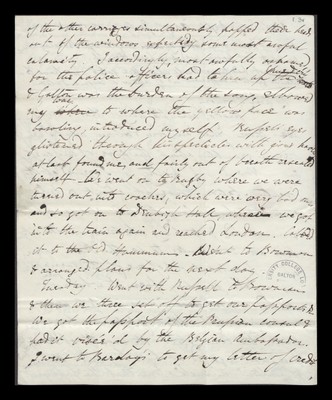 of the other carriages simultaneously popped their heads
out of the windows expecting some most awful
calamity I accordingly, most awfully ashamed
for the police officer had taken up the
& Galton was the burden of the song, elbowed
my way to where the yellow faced was
bawling, introduced myself. Russell's eyes
glistened through his spectacles with joy, having
at last found me, and fairly out of breath
himself. We went on to Rugby where we were
turned out into coaches, which were very bad ones
and so got on to Denbigh Hall, where we got
into the train again and reached London. Called
at the Old Hummums. Went to Bowman
& arranged plans for the next day
Tuesday. Went with Russell to Bowman's
& then we three set off to get our passports
We got the passport of the Prussian consul &
had it visée'd by the Belgian Ambassador.
I went to Barclay's to get my letter of credit
GALTON